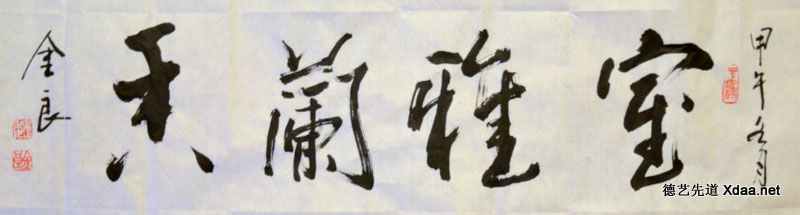 甲午冬月
室雅蘭香
金良
德艺先道 Xdaa.net